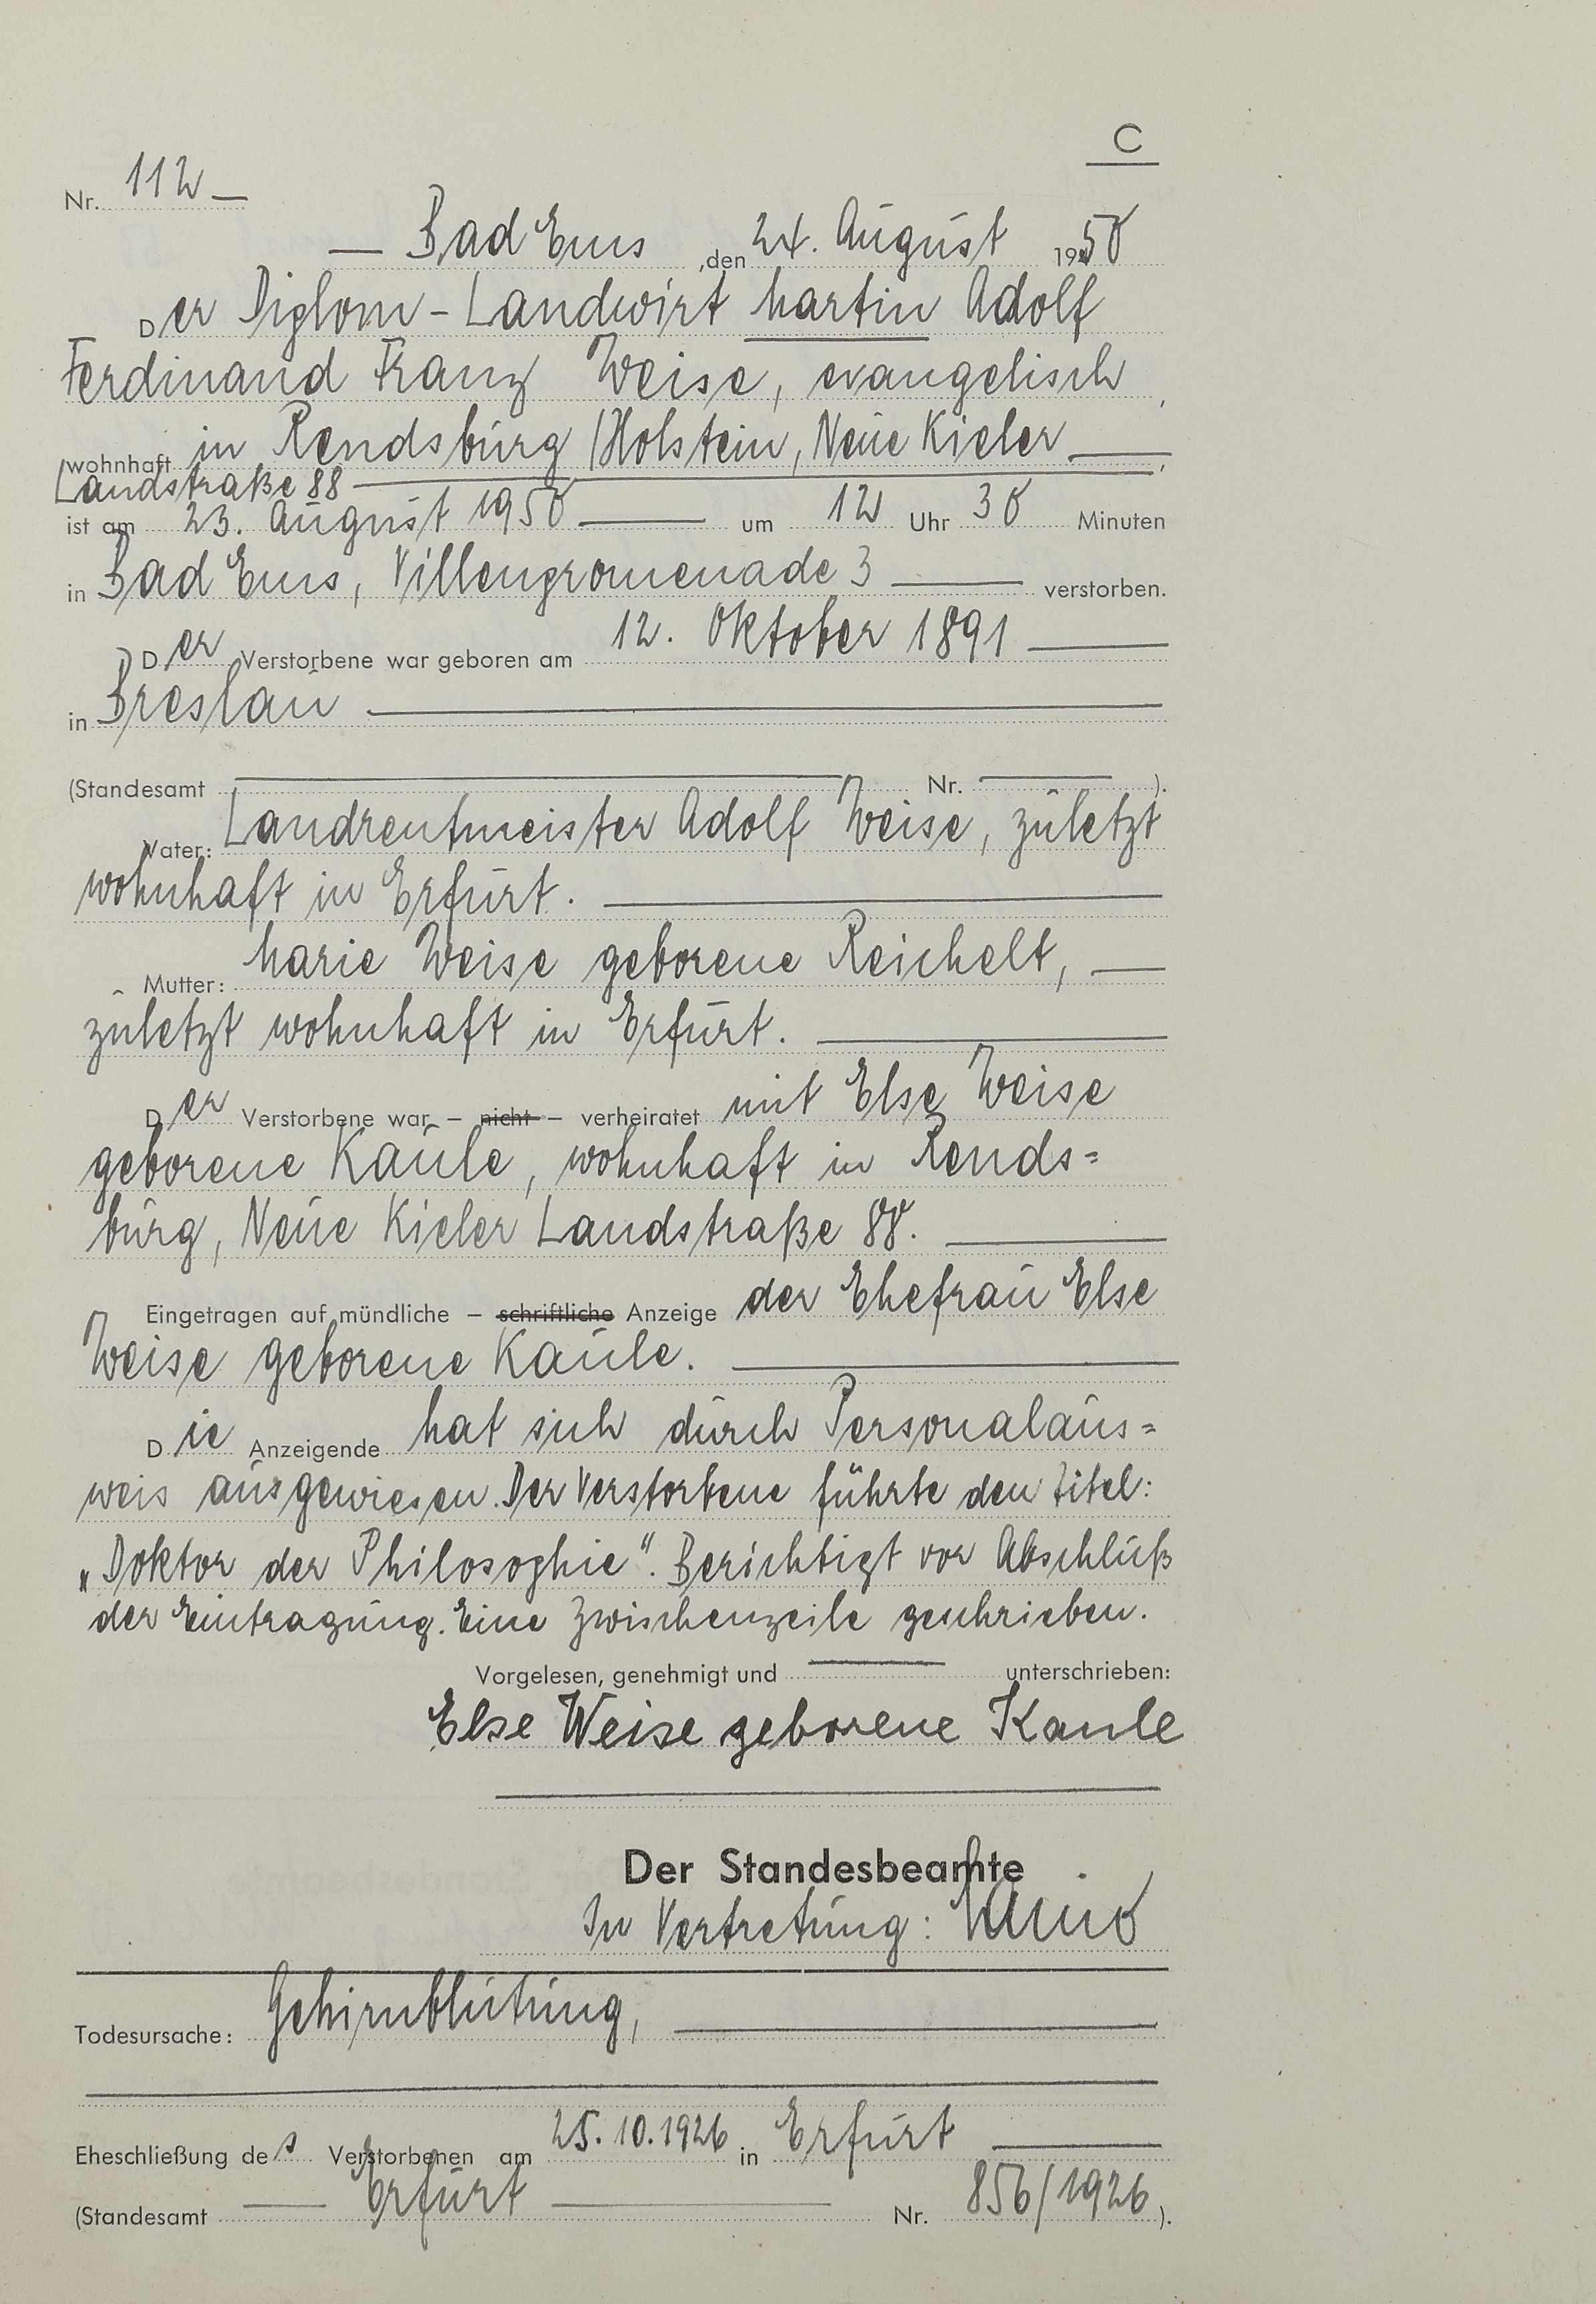 C
Nr. 112 —
— Bad Ems, den 24. August 1950
Der Diplom-Landwirt Martin Adolf
Ferdinand Franz Weise, evangelisch,
wohnhaft in Rendsburg/Holstein, Neue Kieler —
Landstraße 88 —,
ist am 23. August 1950 — um 12 Uhr 30 Minuten
in Bad Ems, Villenpromenade 3 — verstorben.
Der Verstorbene war geboren am 12. Oktober 1891 —
in Breslau —
(Standesamt — Nr. —).
Vater: Landrentmeister Adolf Weise, zuletzt
wohnhaft in Erfurt. —
Mutter: Marie Weise geborene Reichelt, —
zuletzt wohnhaft in Erfurt. —
Der Verstorbene war – nicht – verheiratet mit Else Weise
geborene Kaule, wohnhaft in Rends=
burg, Neue Kieler Landstraße 88. —
Eingetragen auf mündliche – schriftliche Anzeige der Ehefrau Else
Weise geborene Kaule. —
Die Anzeigende hat sich durch Personalaus=
weis ausgewiesen. Der Verstorbene führte den Titel:
„Doktor der Philosophie“. Berichtigt vor Abschluß
der Eintragung. Eine Zwischenzeile geschrieben.
Vorgelesen, genehmigt und — unterschrieben:
Else Weise geborene Kaule
Der Standesbeamte
In Vertretung:
Todesursache: Gehirnblutung, —
Eheschließung des Verstorbenen am 25.10.1926 in Erfurt —
(Standesamt — Erfurt — Nr. 856/1926).